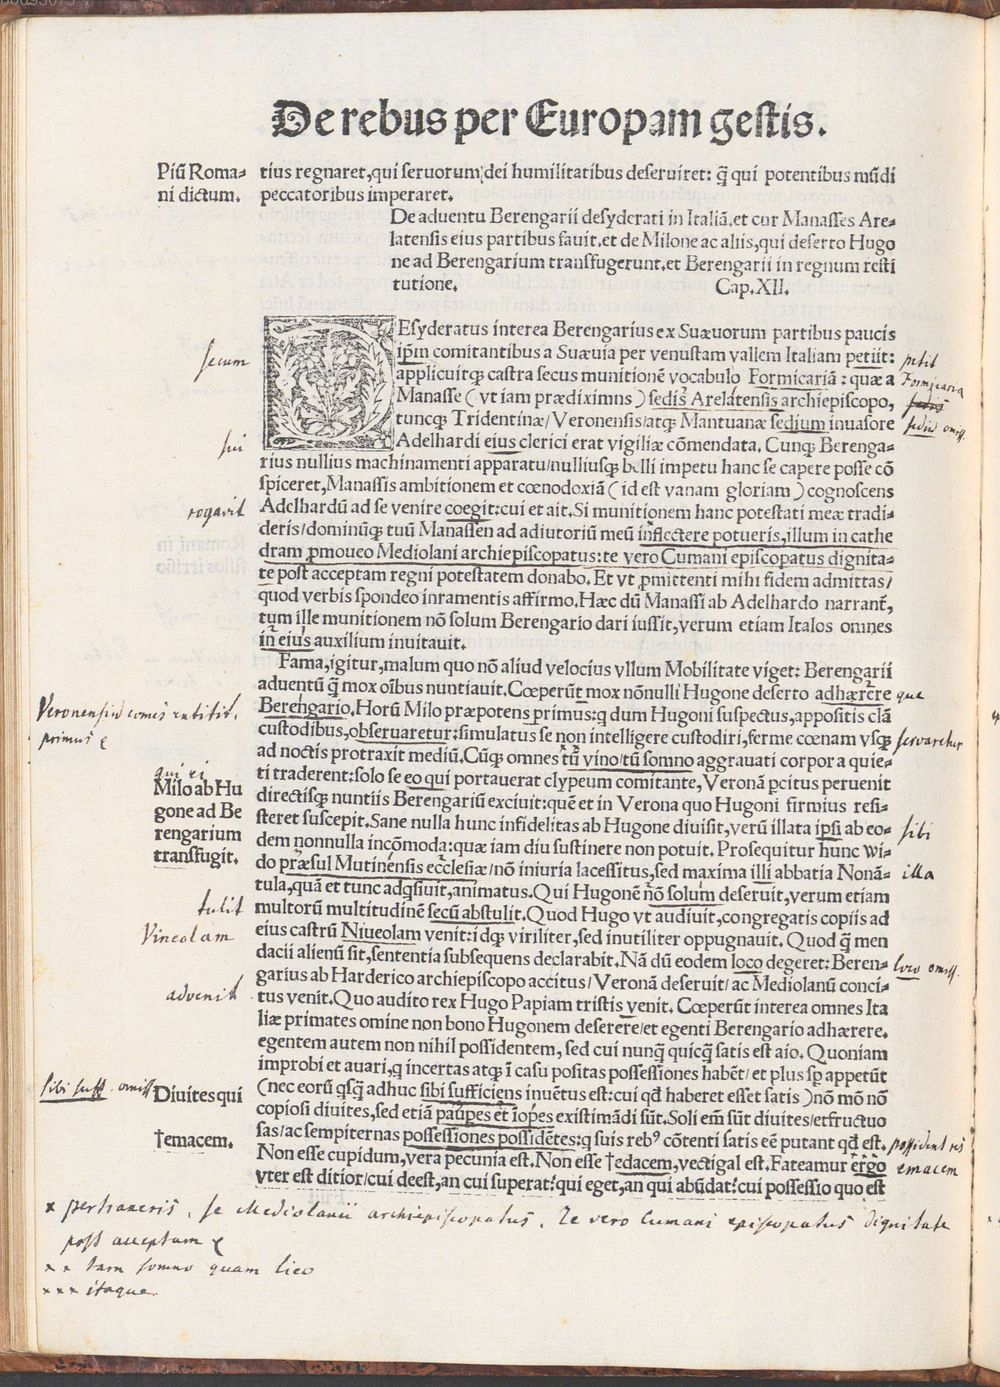 De rebus per Europam gestis.
Piũ Roma-
ni dictum.
tius regnaret, qui seruorum dei humilitatibus deseruiret: q̃ qui potentibus mũdi
peccatoribus imperaret.
De aduentu Berengarii desyderati in Italiã. et cur Manasses Are-
latensis eius partibus fauit. et de Milone ac aliis, qui deserto Hugo
ne ad Berengarium transfugerunt. et Berengarii in regnum resti
tutione. Cap. XII.
Esyderatus interea Berengarius ex Suæuorum partibus paucis
secum
ip̃m comitantibus a Suæuia per venustam vallem Italiam petiit:
petit
applicuitq; castra secus munitionẽ vocabulo Formicariã: quæ a
Formicaria
Manasse (vt iam prædiximns) sedis Arelatensis archiepiscopo,
tuncq; Tridentinæ/Veronensis/atq; Mantuanæ sedium inuasore
sediũ omiss.
Adelhardi eius clerici erat vigiliæ cõmendata. Cunq; Berenga-
sui
rius nullius machinamenti apparatu/nulliusq; belli impetu hanc se capere posse cõ
spiceret, Manassis ambitionem et cœnodoxiã (id est vanam gloriam) cognoscens
Adelhardũ ad se venire coegit: cui et ait. Si munitionem hanc potestati meæ tradi-
rogavit
deris/dominũq; tuũ Manassen ad adiutoriũ meũ inflectere potueris, illum in cathe
dram ꝓmoueo Mediolani archiepiscopatus: te vero Cumani episcopatus dignita-
te post acceptam regni potestatem donabo. Et vt ꝓmittenti mihi fidem admittas/
quod verbis spondeo inramentis affirmo. Hæc dũ Manassi ab Adelhardo narrant̃,
tum ille munitionem nõ solum Berengario dari iussit, verum etiam Italos omnes
in eius auxilium inuitauit.
Fama, igitur, malum quo nõ aliud velocius vllum Mobilitate viget: Berengarii
aduentũ q̃ mox oĩbus nuntiauit. Cœperũt mox nõnulli Hugone deserto adhærere
que
Veronensiũ comes extitit.
primus
Berengario. Horũ Milo præpotens primus: q dum Hugoni suspectus, appositis clã
custodibus, obseruaretur: simulatus se non intelligere custodiri, ferme cœnam vsq;
servaretur
ad noctis protraxit mediũ. Cũq; omnes tũ vino/tũ somno aggrauati corpora quie-
qui ei
Milo ab Hu
gone ad Be
rengarium
transfugit.
ti traderent: solo se eo qui portauerat clypeum comitante, Veronã pcitus peruenit
directisq; nuntiis Berengariũ exciuit: quẽ et in Verona quo Hugoni firmius resi-
steret suscepit. Sane nulla hunc infidelitas ab Hugone diuisit, verũ illata ipsi ab eo-
sibi
dem nonnulla incõmoda: quæ iam diu sustinere non potuit. Prosequitur hunc Wi-
do præsul Mutinensis ecclesiæ/nõ iniuria lacessitus, sed maxima illi abbatia Nonã-
illa
tula, quã et tunc adqsiuit, animatus. Qui Hugonẽ nõ solum deseruit, verum etiam
multorũ multitudinẽ secũ abstulit. Quod Hugo vt audiuit, congregatis copiis ad
tulit
eius castrũ Niueolam venit: idq; viriliter, sed inutiliter oppugnauit. Quod q̃ men
Vineolam
dacii alienũ sit, sententia subsequens declarabit. Nã dũ eodem loco degeret: Beren-
loco omiss.
garius ab Harderico archiepiscopo accitus/Veronã deseruit/ac Mediolanũ conci-
tus venit. Quo audito rex Hugo Papiam tristis venit. Cœperũt interea omnes Ita
advenit
liæ primates omine non bono Hugonem deserere/et egenti Berengario adhærere.
egentem autem non nihil possidentem, sed cui nunq̃ quicq̃ satis est aio. Quoniam
improbi et auari, q incertas atq; ĩ casu positas possessiones habẽt/et plus sp appetũt
sibi suff. omiss.
Diuites qui
(nec eorũ qsq̃ adhuc sibi sufficiens inuẽtus est: cui qd̃ haberet esset satis) nõ mõ nõ
copiosi diuites, sed etiã paupes et iopes existimãdi sũt. Soli em̃ sũt diuites/et fructuo
sas/ac sempiternas possessiones possidẽtes: q suis rebꝰ cõtenti satis eẽ putant qd̃ est.
possident
†emacem.
Non esse cupidum, vera pecunia est. Non esse †edacem, vectigal est. Fateamur ergo
emacem
vter est ditior/cui deest, an cui superat: qui eget, an qui abũdat: cui possessio quo est
x pertraxeris, se Mediolanii archiepiscopatus, Te vero Cumani episcopatus dignitate
post acceptam
x x tam somno quam
x x x itaque